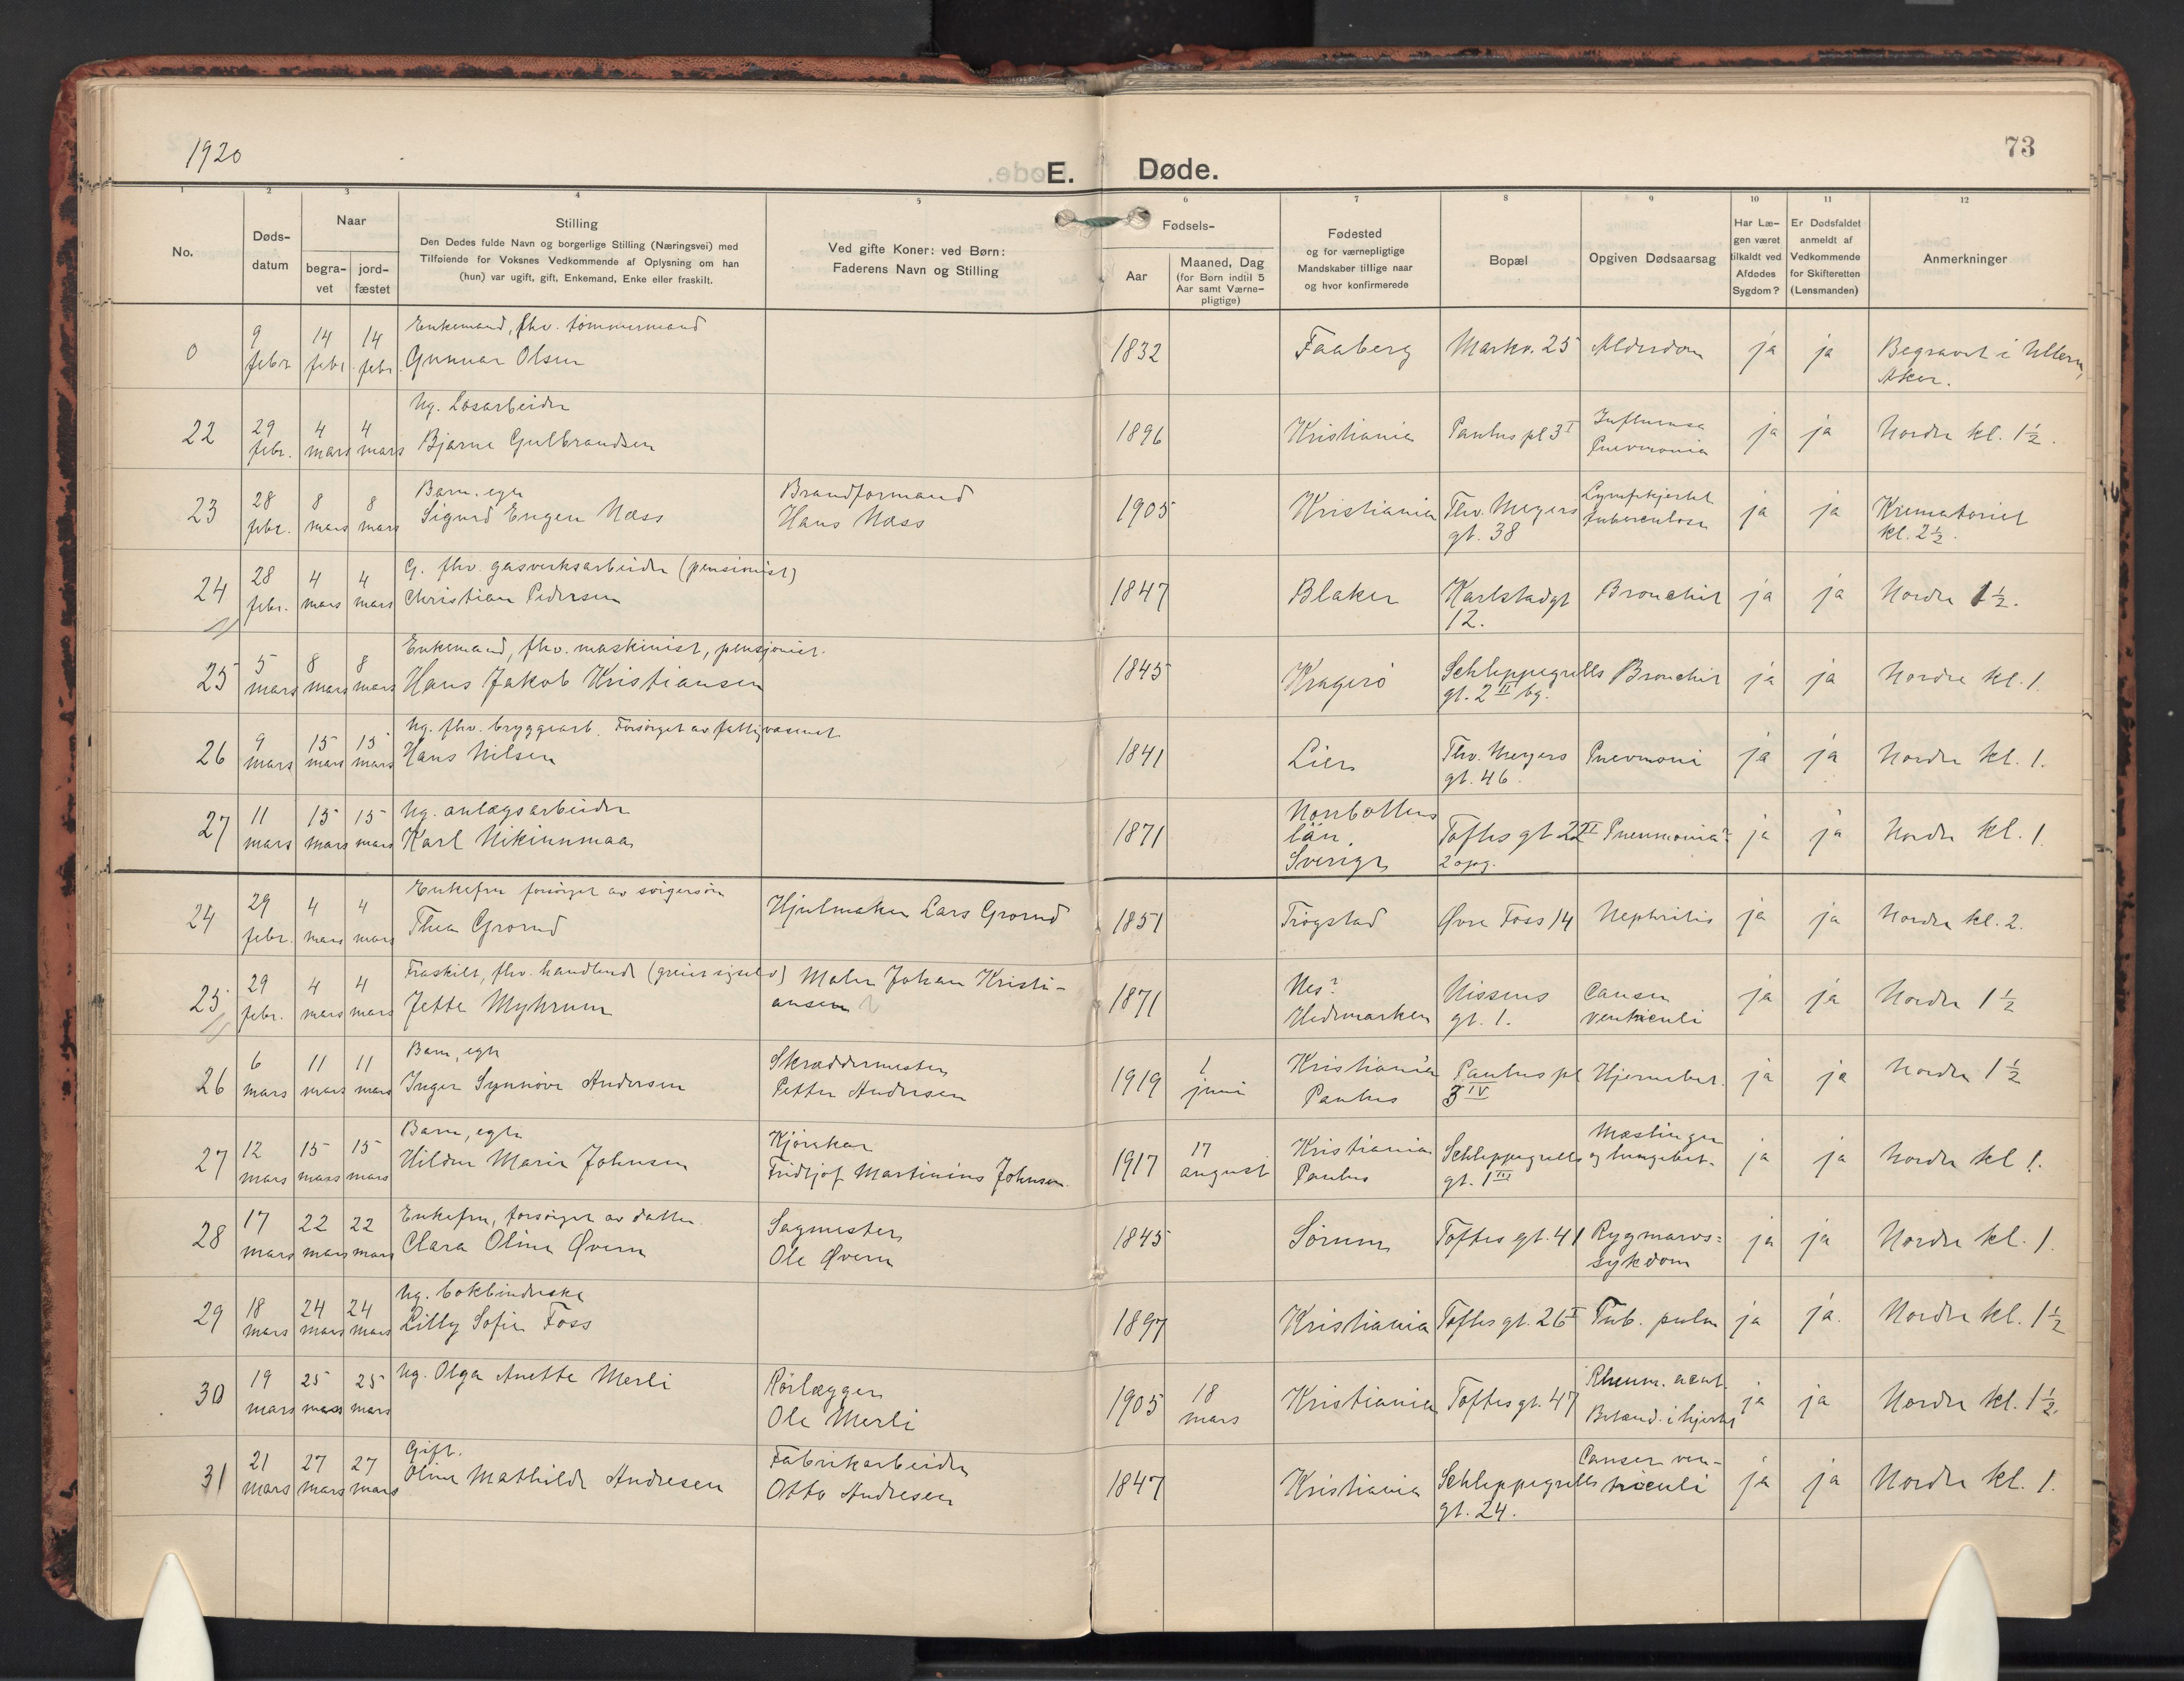 1920
73
E. Døde.
1 2 3 4 5 6 7 8 9 10 11 12
No.
Døds-
datum
Naar
begra-
vet
jord-
fæstet
Stilling
Den Dødes fulde Navn og borgerlige Stilling (Næringsvei) med
Tilføiende for Voksnes Vedkommende af Oplysning om han
(hun) var ugift, gift, Enkemand, Enke eller fraskilt.
Ved gifte Koner: ved Børn:
Faderens Navn og Stilling
Fødsels-
Aar
Maaned, Dag
(for Børn indtil 5
Aar samt Værne-
pligtige)
Fødested
og for værnepligtige
Mandskaber tillige naar
og hvor konfirmerede
Bopæl
Opgiven Dødsaarsag
Har Læ-
gen været
tilkaldt ved
Afdødes
Sygdom?
Er Dødsfaldet
anmeldt af
Vedkommende
for Skifteretten
(Lensmanden)
Anmerkninger
0 9 febr 14 febr. 14 febr.
Enkemand, fhv. tømmermand
Gunnar Olsen
1832 Faaberg Markv. 25 Alderdom ja ja Begravet i Ullern,
Aker.
22 29 febr. 4 mars 4 mars
Ug. Løsarbeider
Bjarne Gulbrandsen
1896 Kristiania Paulus pl 3 I Influensa
Pnevmonia ja ja Nordre kl. 1½.
23 28 febr. 8 mars 8 mars
Barn, egte
Sigurd Eugen Næss
Brandformand
Hans Næss
1905 Kristiania Thv. Meyers
gt. 38
Lymfekjertel
tuberculose ja ja Krematoriet
kl. 2½.
24 28 febr. 4 mars 4 mars
G. fhv. gasverksarbeider (pensionist)
Christian Pedersen
1847 Blaker Karlstadgt
12.
Bronchit ja ja Nordre 1½.
25 5 mars 8 mars 8 mars
Enkemand, fhv. maskinist, pensjonist.
Hans Jakob Kristiansen
1845 Kragerø Schleppegrells
gt. 2 II bg.
Bronchit ja ja Nordre kl. 1.
26 9 mars 15 mars 15 mars
Ug. fhv. bryggearb. Forsørget av fattigvæsenet
Hans Nilsen
1841 Lier Thv. Meyers
gt. 46.
Pnevmoni ja ja Nordre kl. 1.
27 11 mars 15 mars 15 mars
Ug. anlægsarbeider
Karl Nikinnmaa
1871 Norrbottens
län,
Sverige
Toftes gt 22 II
2 opg.
Pneumonia? ja ja Nordre kl. 1.
24 29 febr. 4 mars 4 mars
Enkefru forsørget av svigersøn
Thea Grorud
Hjulmaker Lars Grorud
1851 Trøgstad Øvre Foss 14 Nephritis ja ja Nordre kl. 2.
25 29 febr. 4 mars 4 mars
Fraskilt, fhv. handlende (greier sig selv)
Jette Myhrum
Maler Johan Kristi-
ansen
1871 Nes?
Hedemarken
Nissens
gt. 1.
Canser
ventriculi ja ja Nordre 1½
26 6 mars 11 mars 11 mars
Barn, egte
Inger Synnøve Andersen
Skræddermester
Petter Andersen
1919 1 juni Kristiania
Paulus
Paulus pl
3 IV
Hjernebet. ja ja Nordre 1½
27 12 mars 15 mars 15 mars
Barn, egte
Hildur Marie Johnsen
Kjørekar
Fridtjof Martinius Johnsen.
1917 17 august Kristiania
Paulus
Schleppegrells
gt. 1 III
Mæslinger
og lungebet. ja ja Nordre kl 1.
28 17 mars 22 mars 22 mars
Enkefru, forsørget av datter
Clara Oline Øvern
Sagmester
Ole Øvern
1845 Sørum Toftes gt. 41 Rygmarvs=
sykdom ja ja Nordre kl. 1.
29 18 mars 24 mars 24 mars
Ug. bokbinderske
Lilly Sofie Foss
1897 Kristiania Toftes gt. 26 I Tub. pulm ja ja. Nordre kl. 1½
30 19 mars 25 mars 25 mars
Ug. Olga Anette Merli
Rørlægger
Ole Merli
1905 18 mars Kristiania Toftes gt. 47 Rheum. acut.
Betænd. i hjertet ja ja Nordre kl. 1½.
31 21 mars 27 mars 27 mars
Gift.
Oline Mathilde Andresen
Fabrikarbeider
Otto Andresen
1847 Kristiania Schleppegrells
gt. 24.
Canser ven-
triculi ja ja Nordre kl. 1.